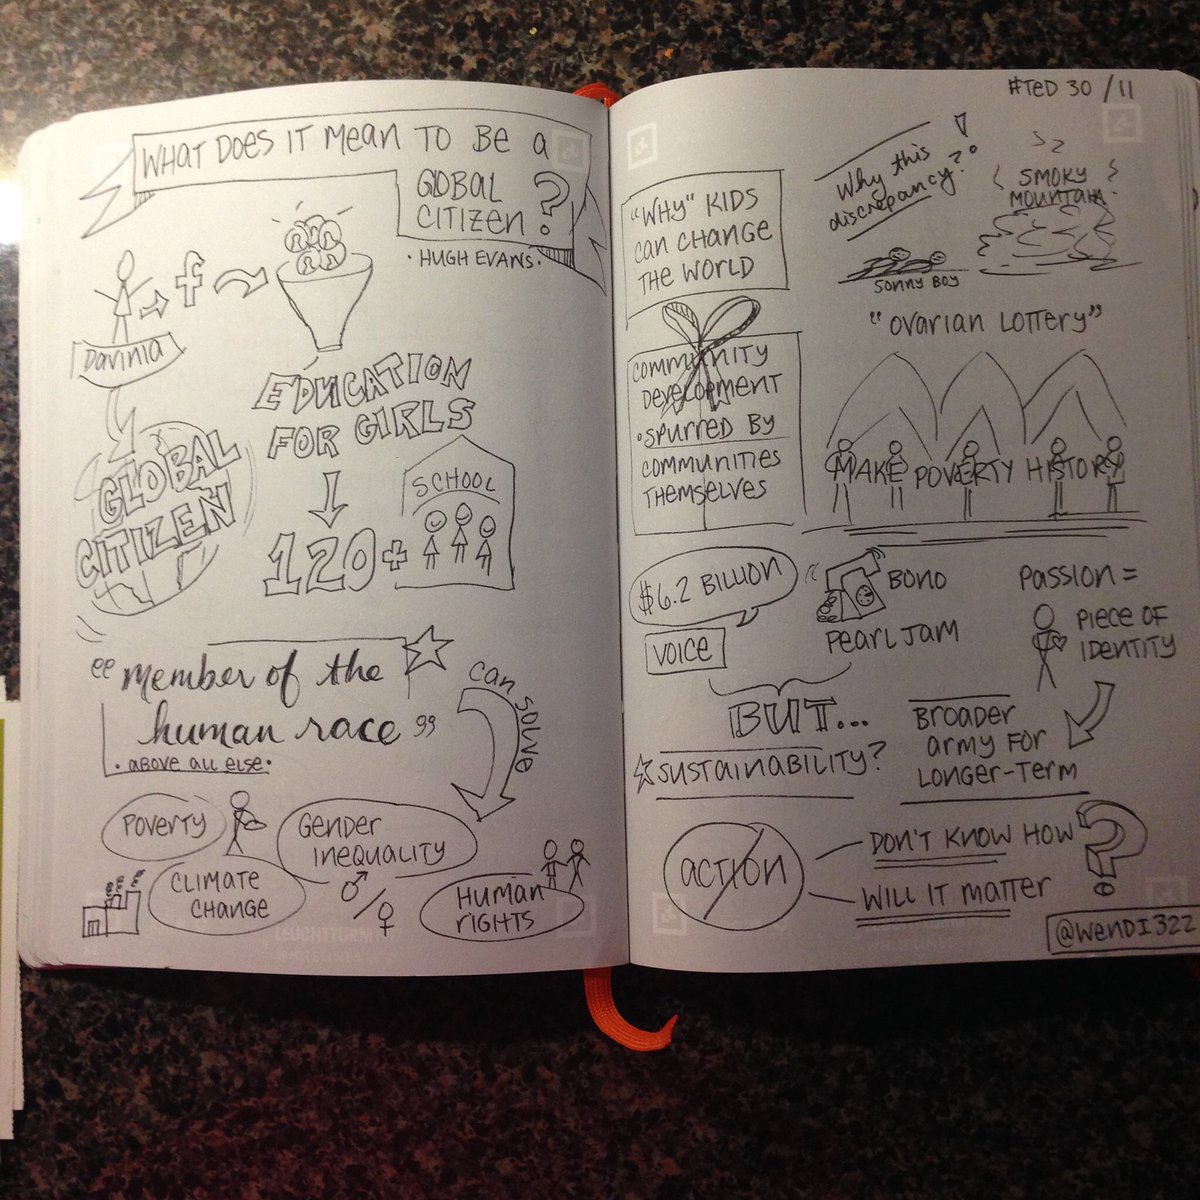 WHAT DOES IT MEAN TO BE A
GLOBAL
CITIZEN?
• HUGH EVANS •
f
Davinia
GLOBAL
CITIZEN
EDUCATION
FOR GIRLS
120+
SCHOOL
"member of the
human race"
• ABOVE ALL ELSE •
can solve
POVERTY
GENDER
INEQUALITY
CLIMATE
CHANGE
HUMAN
RIGHTS
LEUCHTTURM
#TED 30/11
"WHY" KIDS
CAN CHANGE
THE WORLD
Why this
discrepancy?
SMOKY
MOUNTAIN
SONNY BOY
COMMUNITY
DEVELOPMENT
• SPURRED BY
COMMUNITIES
THEMSELVES
"OVARIAN LOTTERY"
MAKE POVERTY HISTORY
$6.2 BILLION
VOICE
BONO
PEARL JAM
PASSION =
PIECE OF
IDENTITY
BUT...
SUSTAINABILITY?
BROADER
ARMY FOR
LONGER-TERM
ACTION
DON'T KNOW HOW
WILL IT MATTER
?
@WENDI322